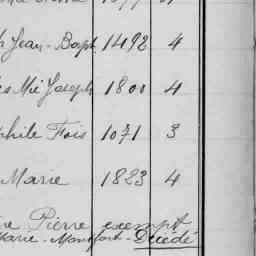 Jean-Bapt 1492 4
Mie Joseph 1800 4
phile Fois 1071 3
Marie 1823 4
Pierre exempt
Marie-Montfort-Décédé